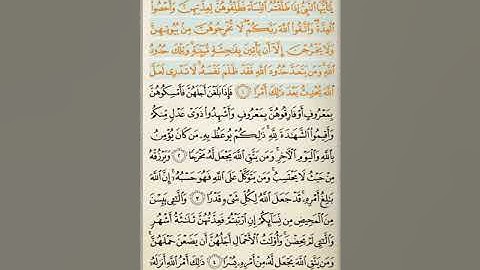 يَٰٓأَيُّهَا ٱلنَّبِىُّ إِذَا طَلَّقْتُمُ ٱلنِّسَآءَ فَطَلِّقُوهُنَّ لِعِدَّتِهِنَّ وَأَحْصُوا۟
ٱلْعِدَّةَ وَٱتَّقُوا۟ ٱللَّهَ رَبَّكُمْ لَا تُخْرِجُوهُنَّ مِنۢ بُيُوتِهِنَّ
وَلَا يَخْرُجْنَ إِلَّآ أَن يَأْتِينَ بِفَٰحِشَةٍ مُّبَيِّنَةٍ وَتِلْكَ حُدُودُ
ٱللَّهِ وَمَن يَتَعَدَّ حُدُودَ ٱللَّهِ فَقَدْ ظَلَمَ نَفْسَهُۥ لَا تَدْرِى لَعَلَّ
ٱللَّهَ يُحْدِثُ بَعْدَ ذَٰلِكَ أَمْرًا ١ فَإِذَا بَلَغْنَ أَجَلَهُنَّ فَأَمْسِكُوهُنَّ
بِمَعْرُوفٍ أَوْ فَارِقُوهُنَّ بِمَعْرُوفٍ وَأَشْهِدُوا۟ ذَوَىْ عَدْلٍ مِّنكُمْ
وَأَقِيمُوا۟ ٱلشَّهَٰدَةَ لِلَّهِ ذَٰلِكُمْ يُوعَظُ بِهِۦ مَن كَانَ يُؤْمِنُ
بِٱللَّهِ وَٱلْيَوْمِ ٱلْءَاخِرِ وَمَن يَتَّقِ ٱللَّهَ يَجْعَل لَّهُۥ مَخْرَجًا ٢ وَيَرْزُقْهُ
مِنْ حَيْثُ لَا يَحْتَسِبُ وَمَن يَتَوَكَّلْ عَلَى ٱللَّهِ فَهُوَ حَسْبُهُۥٓ إِنَّ ٱللَّهَ
بَٰلِغُ أَمْرِهِۦ قَدْ جَعَلَ ٱللَّهُ لِكُلِّ شَىْءٍ قَدْرًا ٣ وَٱلَّٰٓـِٔى يَئِسْنَ
مِنَ ٱلْمَحِيضِ مِن نِّسَآئِكُمْ إِنِ ٱرْتَبْتُمْ فَعِدَّتُهُنَّ ثَلَٰثَةُ أَشْهُرٍ
وَٱلَّٰٓـِٔى لَمْ يَحِضْنَ وَأُو۟لَٰتُ ٱلْأَحْمَالِ أَجَلُهُنَّ أَن يَضَعْنَ حَمْلَهُنَّ
وَمَن يَتَّقِ ٱللَّهَ يَجْعَل لَّهُۥ مِنْ أَمْرِهِۦ يُسْرًا ٤ ذَٰلِكَ أَمْرُ ٱللَّهِ أَنزَلَهُۥٓ